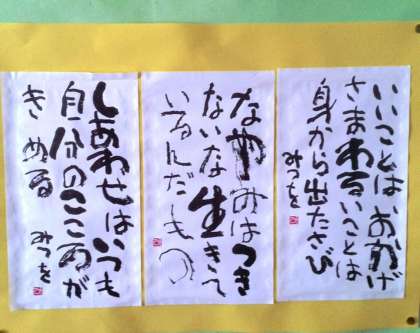 いいことはおかげ
さまわるいことは
身から出たさび
みつを
なやみはつき
ないな生きて
いるんだもの
しあわせはいつも
自分のこころが
きめる
みつを